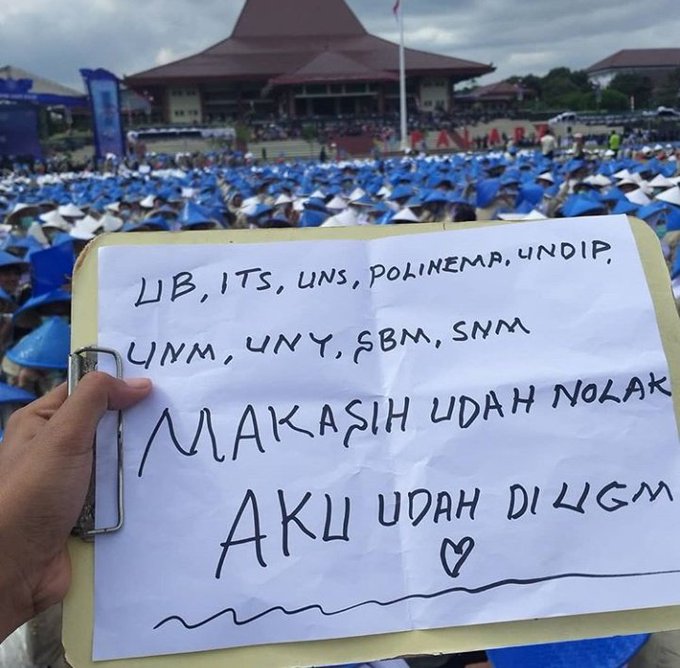 UB, ITS, UNS, POLINEMA, UNDIP,
UNM, UNY, SBM, SNM
MAKASIH UDAH NOLAK
AKU UDAH DI UGM